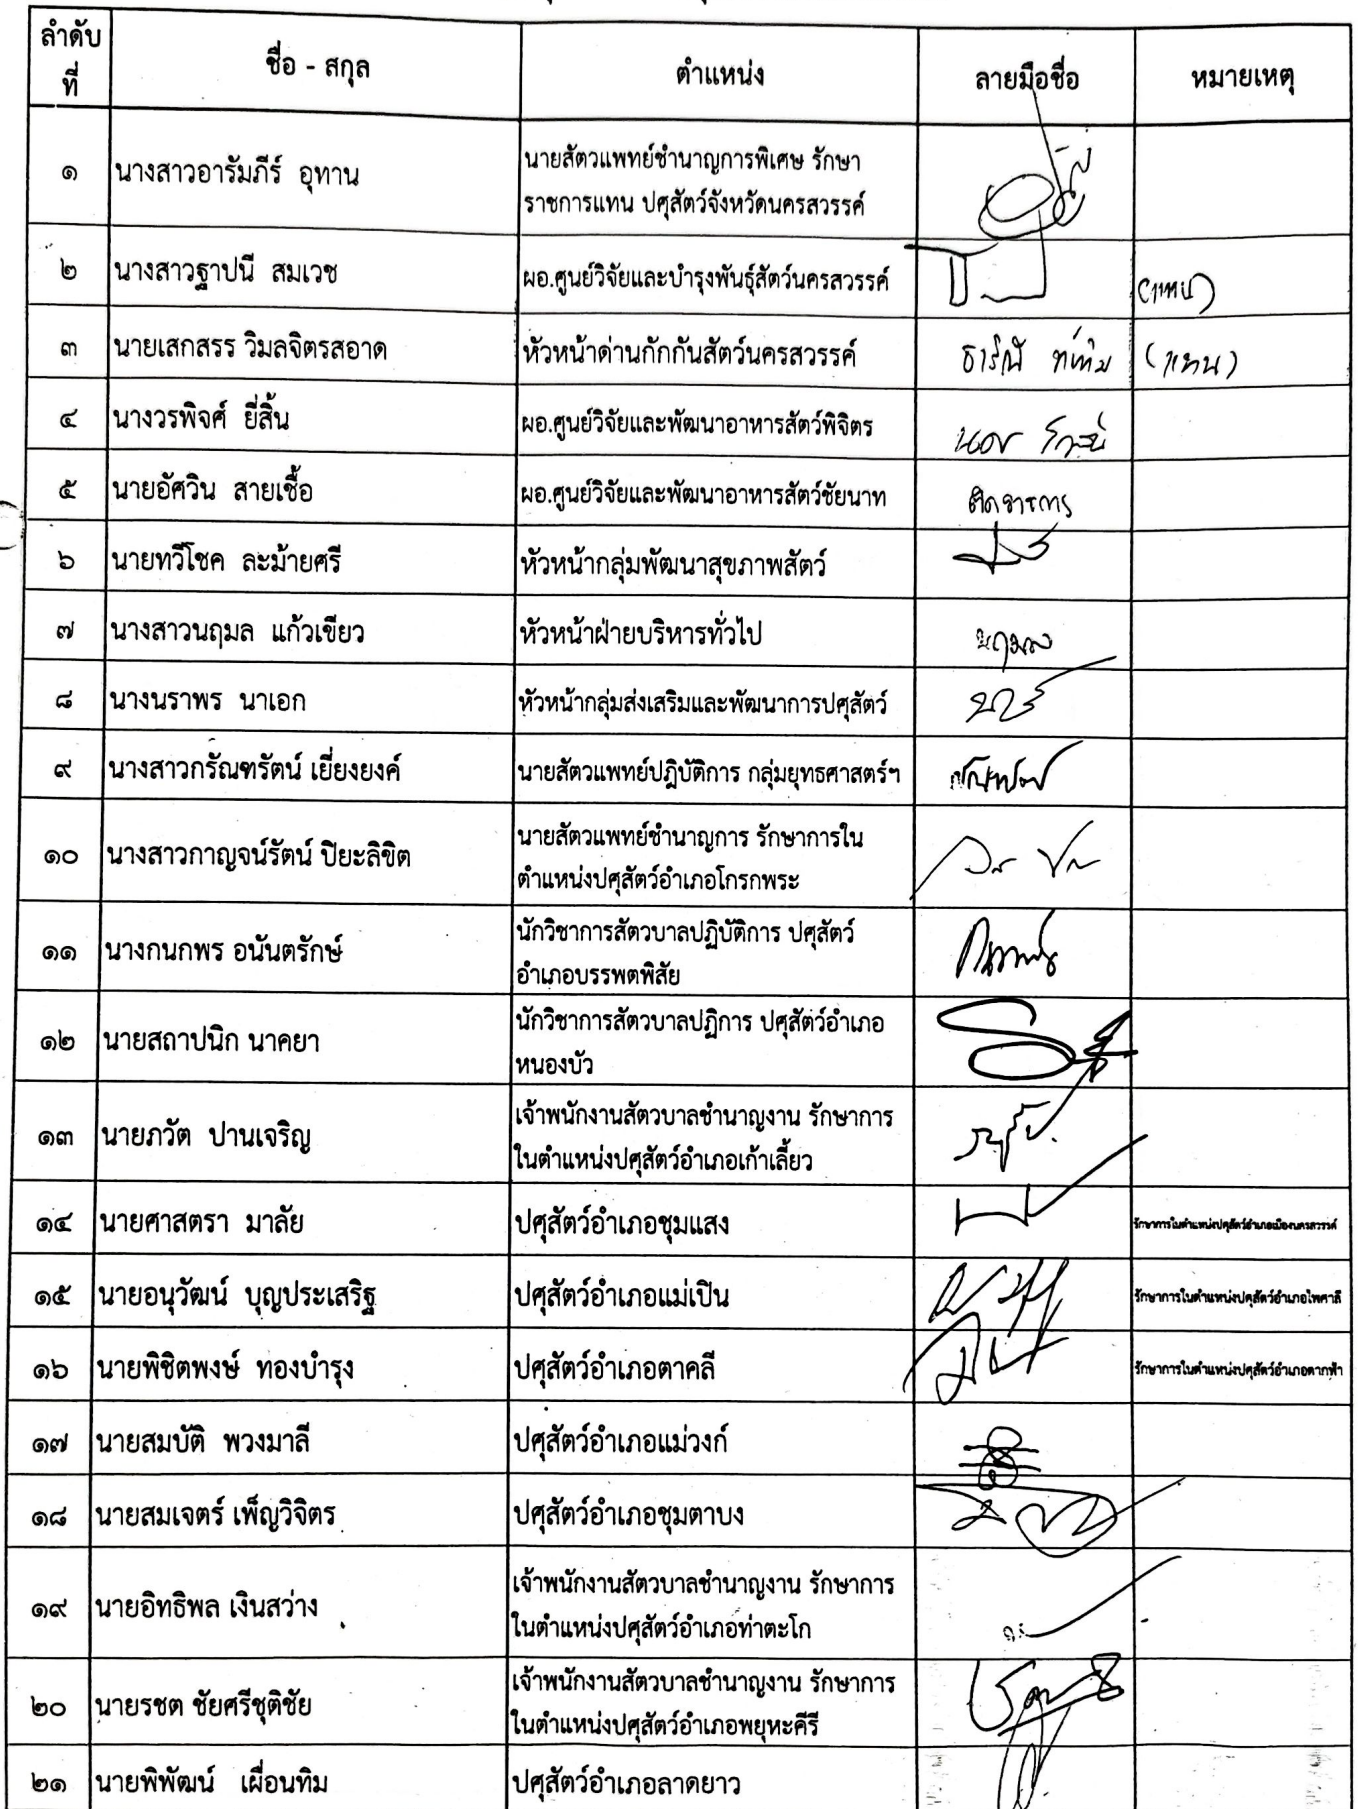 ลำดับ
ที่
ชื่อ - สกุล
ตำแหน่ง
ลายมือชื่อ
หมายเหตุ
๑ นางสาวอารัมภีร์ อุทาน
นายสัตวแพทย์ชำนาญการพิเศษ รักษา
ราชการแทน ปศุสัตว์จังหวัดนครสวรรค์
๒ นางสาวฐาปนี สมเวช ผอ.ศูนย์วิจัยและบำรุงพันธุ์สัตว์นครสวรรค์ (แทน)
๓ นายเสกสรร วิมลจิตรสอาด หัวหน้าด่านกักกันสัตว์นครสวรรค์ (แทน)
๔ นางวรพิจศ์ ยี่สิ้น ผอ.ศูนย์วิจัยและพัฒนาอาหารสัตว์พิจิตร
๕ นายอัศวิน สายเชื้อ ผอ.ศูนย์วิจัยและพัฒนาอาหารสัตว์ชัยนาท ติดราชการ
๖ นายทวีโชค ละม้ายศรี หัวหน้ากลุ่มพัฒนาสุขภาพสัตว์
๗ นางสาวนฤมล แก้วเขียว หัวหน้าฝ่ายบริหารทั่วไป นฤมล
๘ นางนราพร นาเอก หัวหน้ากลุ่มส่งเสริมและพัฒนาการปศุสัตว์
๙ นางสาวกรัณฑรัตน์ เยี่ยงยงค์ นายสัตวแพทย์ปฏิบัติการ กลุ่มยุทธศาสตร์ฯ
๑๐ นางสาวกาญจน์รัตน์ ปิยะลิขิต
นายสัตวแพทย์ชำนาญการ รักษาการใน
ตำแหน่งปศุสัตว์อำเภอโกรกพระ
๑๑ นางกนกพร อนันตรักษ์
นักวิชาการสัตวบาลปฏิบัติการ ปศุสัตว์
อำเภอบรรพตพิสัย
๑๒ นายสถาปนิก นาคยา
นักวิชาการสัตวบาลปฏิการ ปศุสัตว์อำเภอ
หนองบัว
๑๓ นายภวัต ปานเจริญ
เจ้าพนักงานสัตวบาลชำนาญงาน รักษาการ
ในตำแหน่งปศุสัตว์อำเภอเก้าเลี้ยว
๑๔ นายศาสตรา มาลัย ปศุสัตว์อำเภอชุมแสง รักษาการในตำแหน่งปศุสัตว์อำเภอเมืองนครสวรรค์
๑๕ นายอนุวัฒน์ บุญประเสริฐ ปศุสัตว์อำเภอแม่เปิน รักษาการในตำแหน่งปศุสัตว์อำเภอไพศาลี
๑๖ นายพิชิตพงษ์ ทองบำรุง ปศุสัตว์อำเภอตาคลี รักษาการในตำแหน่งปศุสัตว์อำเภอตากฟ้า
๑๗ นายสมบัติ พวงมาลี ปศุสัตว์อำเภอแม่วงก์
๑๘ นายสมเจตร์ เพ็ญวิจิตร ปศุสัตว์อำเภอชุมตาบง
๑๙ นายอิทธิพล เงินสว่าง
เจ้าพนักงานสัตวบาลชำนาญงาน รักษาการ
ในตำแหน่งปศุสัตว์อำเภอท่าตะโก
๒๐ นายรชต ชัยศรีชุติชัย
เจ้าพนักงานสัตวบาลชำนาญงาน รักษาการ
ในตำแหน่งปศุสัตว์อำเภอพยุหะคีรี
๒๑ นายพิพัฒน์ เผื่อนทิม ปศุสัตว์อำเภอลาดยาว